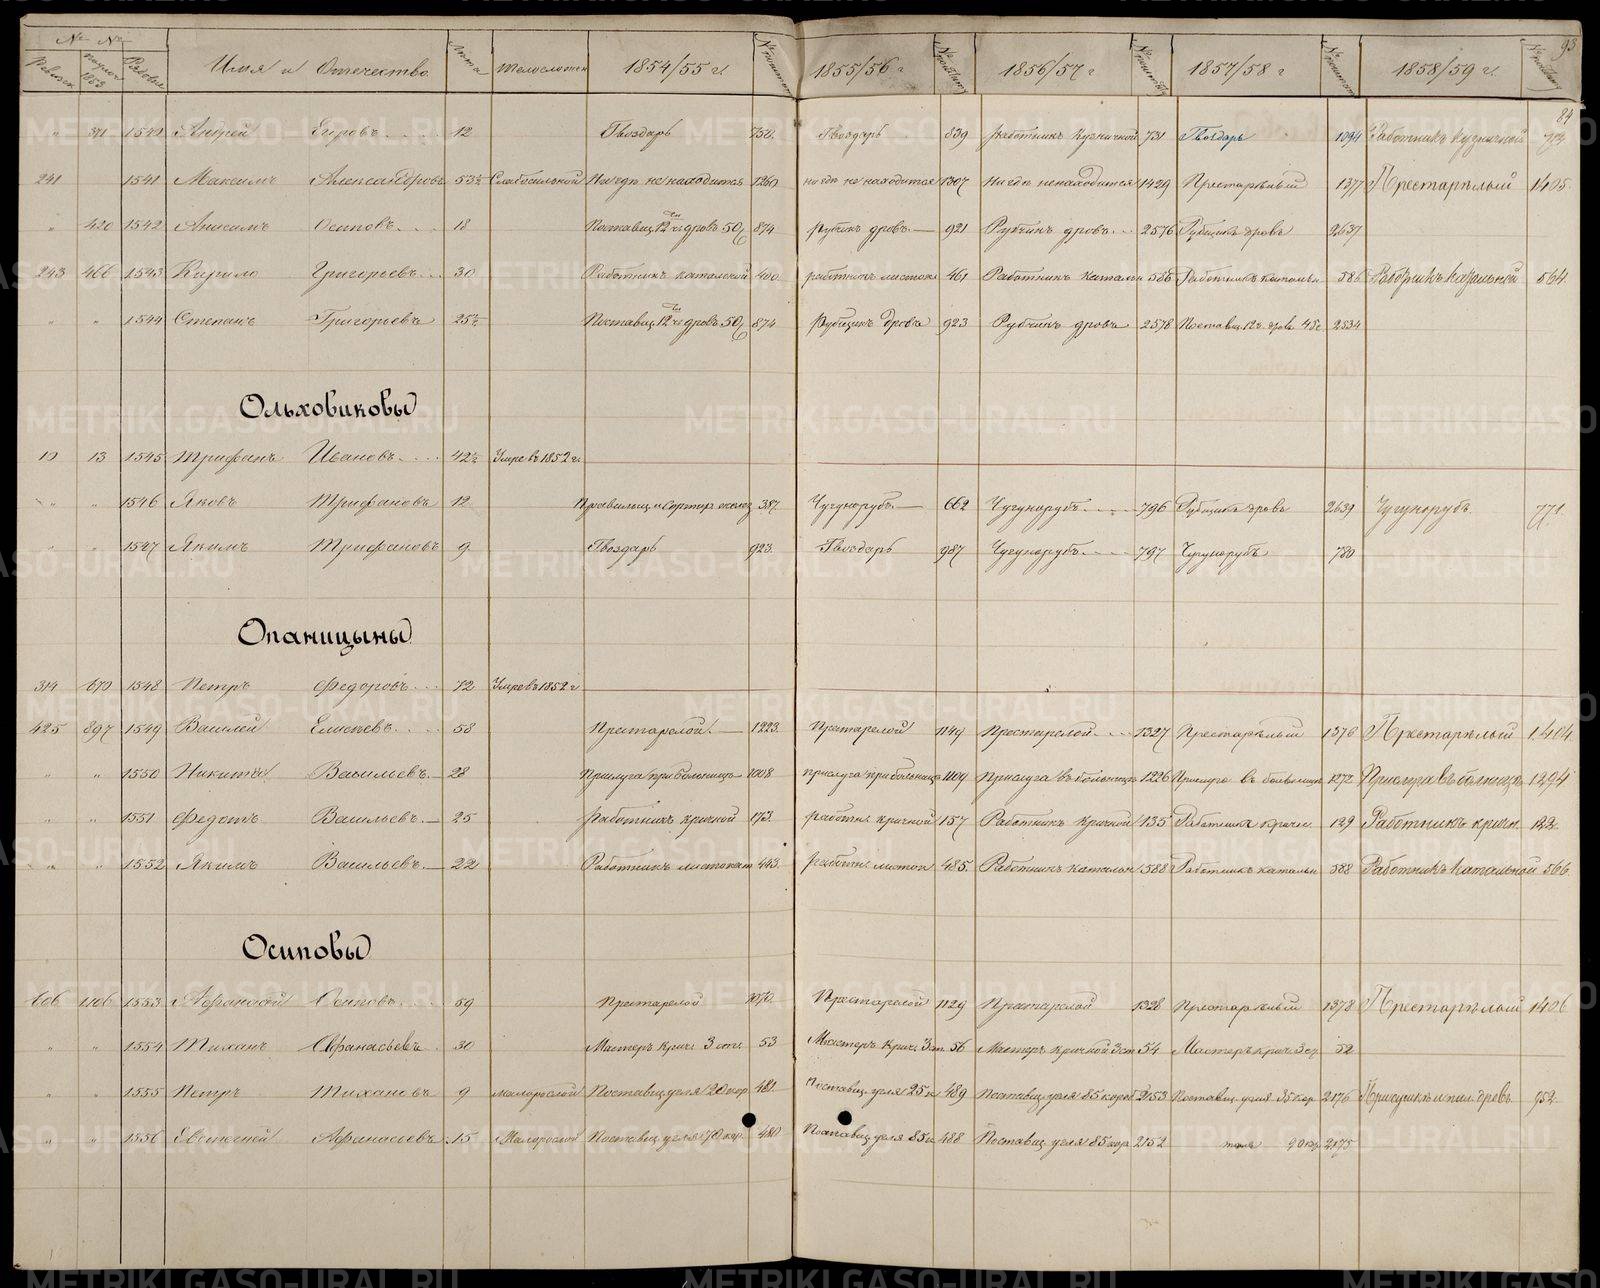 № №
Имя и Отечество 1854/55 г. 1855/56 г 1856/57 г 1857/58 г 1858/59 г. 93
84
1540 Андрей Егоровъ 12 Гвоздарь 750 Гвоздарь 839 Работникъ кузничной 731 Гвоздарь 1094 Работникъ кузничной
241 1541 Максимъ Александровъ 53½ Слабосильной Нигдѣ не находится 1260 нигдѣ не находится 1307 Нигдѣ ненаходится 1429 Престарѣлый 1377 Престарѣлый 1405
" 420 1542 Анисимъ Осиповъ 18 Поставщ 12 че дровъ 50 874 Рубщикъ дровъ 921 Рубщикъ дровъ 2576 Рубщикъ дровъ 2637
243 466 1543 Кирило Григорьевъ 30 Работникъ катальной 400 работникъ листокат 461 Работникъ катальн 586 Работникъ катальн 586 Работникъ катальной 564
" " 1544 Степанъ Григорьевъ 25½ Поставщ 12 че дровъ 50 874 Рубщикъ дровъ 923 Рубщикъ дровъ 2578 Поставщ. 12 ч. дровъ 45 2534
Ольховиковы
10 13 1545 Трифанъ Ивановъ 42½ Умре въ 1852 г.
" " 1546 Яковъ Трифановъ 12 387 Чугунорубъ 662 Чугунорубъ 796 Рубщикъ дровъ 2631 Чугунорубъ 771
" " 1547 Якимъ Трифановъ 9 Гвоздарь 923 Гвоздарь 987 Чугунорубъ 797 Чугунорубъ 780
Опаницыны
314 670 1548 Петръ Федоровъ 72 Умре въ 1852 г
425 897 1549 Василей Елисѣевъ 58 Престарелой 1223 Престарелой 1149 Престарелой 1327 Престарѣлый 1376 Престарѣлый 1404
" " 1550 Никита Васильевъ 28 Прислуга при больницѣ 1008 прислуга при больницѣ 1109 Прислуга въ больницѣ 1226 Прислуга въ больницѣ 1272 Прислуга въ больницѣ 1294
" " 1551 Федотъ Васильевъ 25 Работникъ кричной 173 работн кричной 157 Работникъ кричной 135 Работникъ кричн 129 Работникъ кричн. 122
" " 1552 Якимъ Васильевъ 22 Работникъ листокат 443 работн листок 485 Работникъ катальн 588 Работникъ катальн 588 Работникъ катальной 566
Осиповы
606 1106 1553 Афанасей Осиповъ 59 Престарелой 1070 Престарелой 1129 Престарелой 1328 Престарѣлый 1378 Престарѣлый 1406
" " 1554 Тиханъ Афанасьевъ 30 Мастеръ крич. 3 ст. 53 Мастеръ крич. 3 ст 56 Мастеръ кричной 3 ст 54 Мастеръ крич 3 ст 52
" " 1555 Петръ Тихановъ 9 малорослой Поставщ угля 20 кор 481 Поставщ. угля 25 к 489 Поставщ. угля 85 короб 2153 Поставщ. угля 35 кор 2176 952
" " 1556 Евстегней Афанасьевъ 15 Малорослой Поставщ угля 70 кор. 480 Поставщ угля 85 к 488 Поставщ угля 85 кор 2152 тоже 90 кор 2175
METRIKI.GASO-URAL.RU